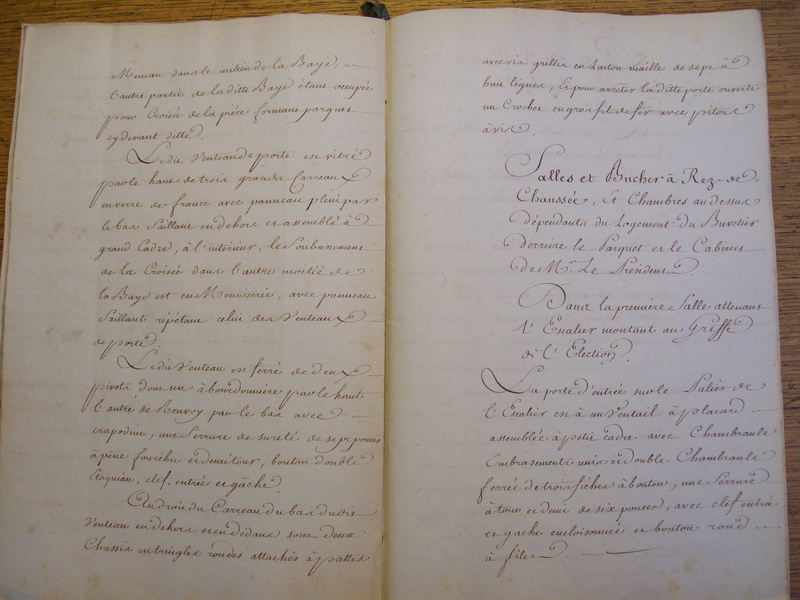 Meneau dans le milieu de la Baye,
l'autre partie de la ditte Baye étant occupée
pour Croisée de la piéce formant parquet
cy devant ditte.
Ledit Venteau de porte est vitré
par le haut de trois grands Carreaux
en verre de france avec panneau plein par
le bas Saillant en dehors et assemblé à
grand Cadre, à l'intérieur, le Soubassement
de la Croisée dans l'autre moitié de
la Baye est en Menuiserie, avec panneau
Saillant répétant celui des Venteaux
de porte.
Ledit Venteau est ferré de deux
pivots dont un à bourdonniere par le haut
l'autre de Renvoy par le bas avec
crapodine, une Serrure de sureté de sept pouces
à pêne fourchu et demi tour, bouton double
clef, entrée et gâche.
Au droit du Carreau du bas dudit
Venteau en dehors et en dedans sont deux
Chassis en tringles rondes attachés à pattes
avec vis grillés en Laiton maille de sept à
huit lignes, Et pour arreter la ditte porte ouverte
un Crochet en gros fil de fer avec pitons
à vis.
Salles et Bucher à Rez-de-
Chaussée, Et Chambres au dessus
dépendants du Logement du Buvetier
Derrière le Parquet et le Cabinet
De Mr. Le Président.
Dans la première Salle attenant
l'Escalier montant au Greffe
de l'Election.
La porte d'entrée sur le Palier de
l'Escalier est à un Ventail à placard
assemblée à petit cadre avec Chambranle
Embrasement unis et double Chambranle
ferrée de trois fiches à bouton, une Serrure
à tour et demi de six pouces, avec clef entrée
et gache encloisonnée et bouton rond
à filet.